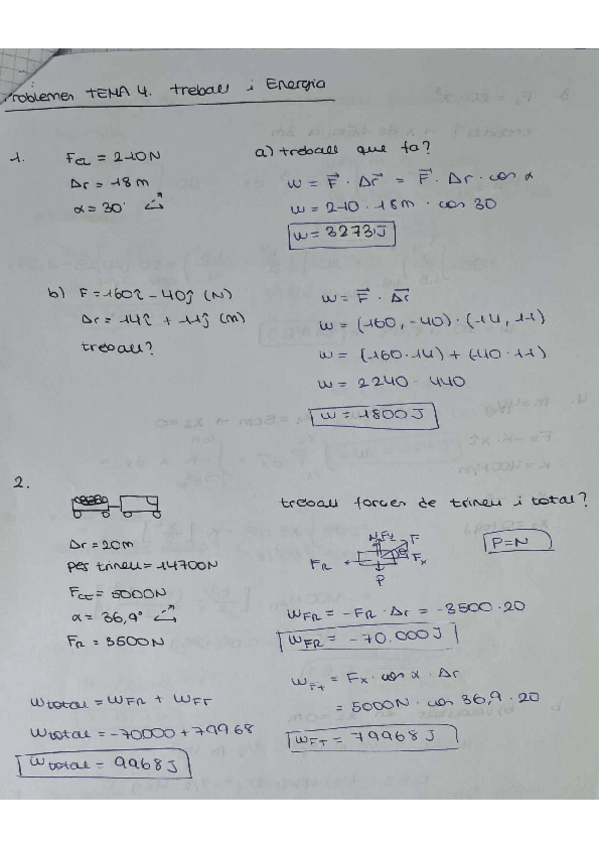 Problemes TEMA 4. treball i Energia
1. Fcl = 210N
Δr = 18m
α = 30°
a) treball que fa?
W = F⃗ · Δr⃗ = F⃗ · Δr · cos α
W = 210 · 18m · cos 30
W = 3273J
b) F = 160î - 40ĵ (N)
Δr = 14î + 11ĵ (m)
treball?
W = F⃗ · Δr⃗
W = (160, -40) · (14, 11)
W = (160·14) + (-40·11)
W = 2240 - 440
W = 1800J
2.
Δr = 20m
pes trineu = 14700N
Fct = 5000N
α = 36,9°
FR = 3500N
treball forces de trineu i total?
N Fy F
FR Fx
P
P=N
WFR = -FR · Δr = -3500·20
WFR = -70.000J
WFT = Fx · cos α · Δr
= 5000N · cos 36,9 · 20
WFT = 79968J
Wtotal = WFR + WFT
Wtotal = -70000 + 79968
Wtotal = 9968J